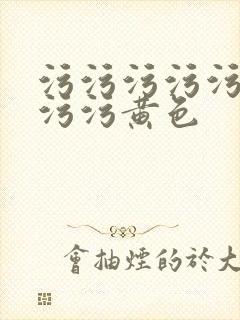 污污污污污
污污黄色
會抽煙的於大